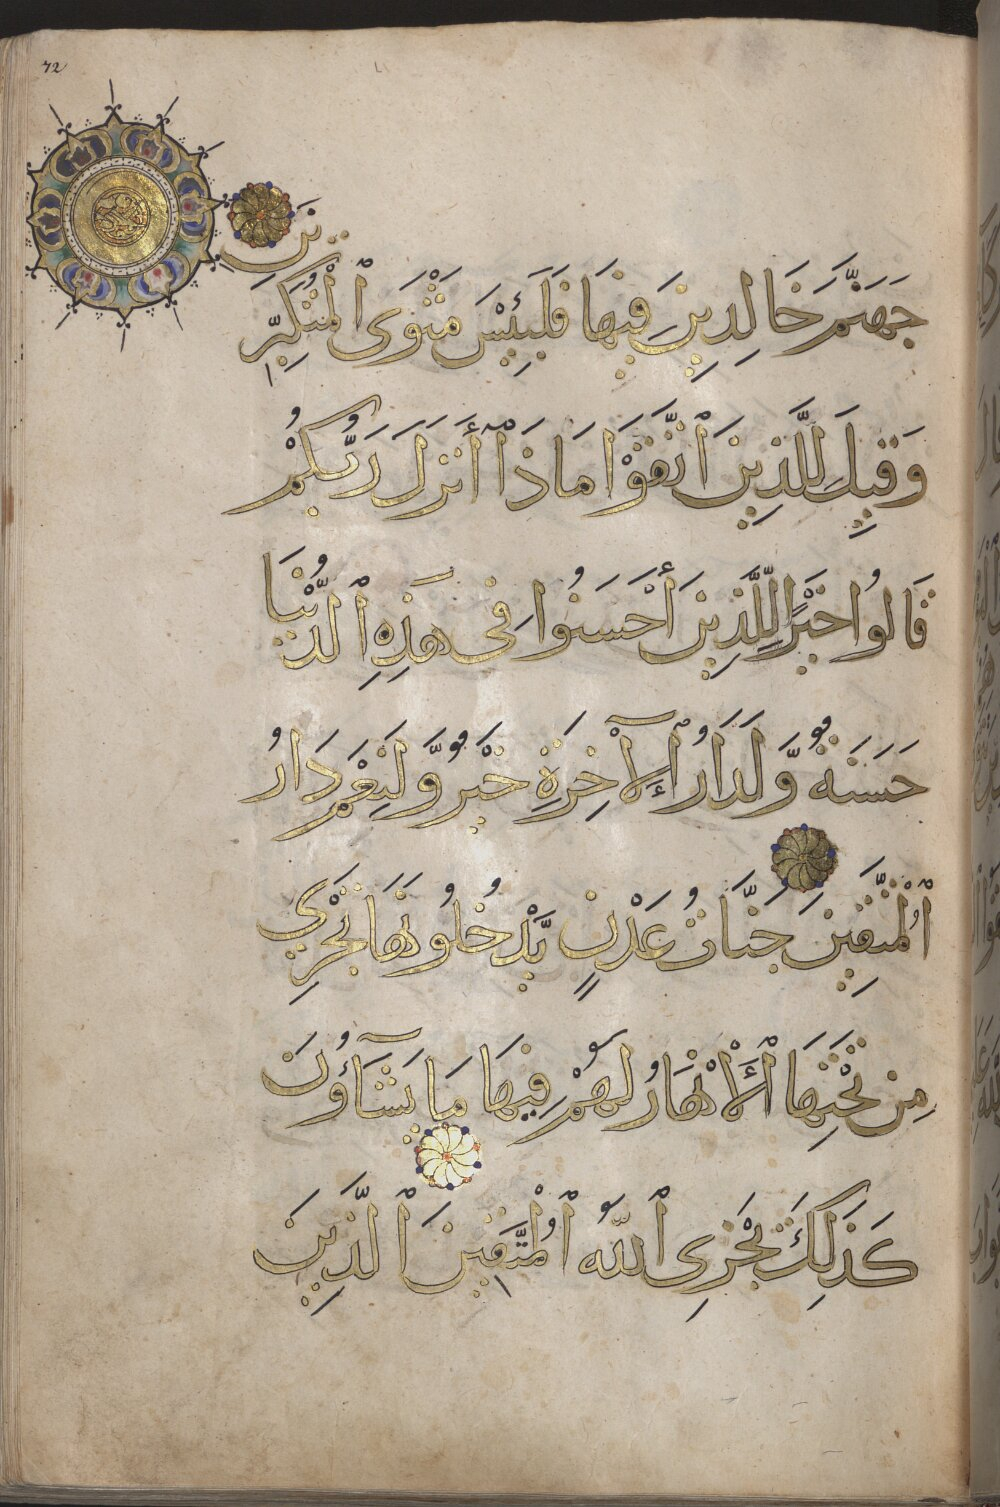 72
جَهَنَّمَ خَالِدِينَ فِيهَا فَلَبِئْسَ مَثْوَى ٱلْمُتَكَبِّرِينَ
وَقِيلَ لِلَّذِينَ ٱتَّقَوْا مَاذَا أَنزَلَ رَبُّكُمْ
قَالُوا خَيْرًا لِّلَّذِينَ أَحْسَنُوا فِى هَٰذِهِ ٱلدُّنْيَا
حَسَنَةٌ وَّلَدَارُ ٱلْآخِرَةِ خَيْرٌ وَّلَنِعْمَ دَارُ
ٱلْمُتَّقِينَ جَنَّاتُ عَدْنٍ يَّدْخُلُونَهَا تَجْرِي
مِن تَحْتِهَا ٱلْأَنْهَارُ لَهُمْ فِيهَا مَا يَشَآؤُنَ
كَذَلِكَ يَجْزِى ٱللَّهُ ٱلْمُتَّقِينَ ٱلَّذِينَ